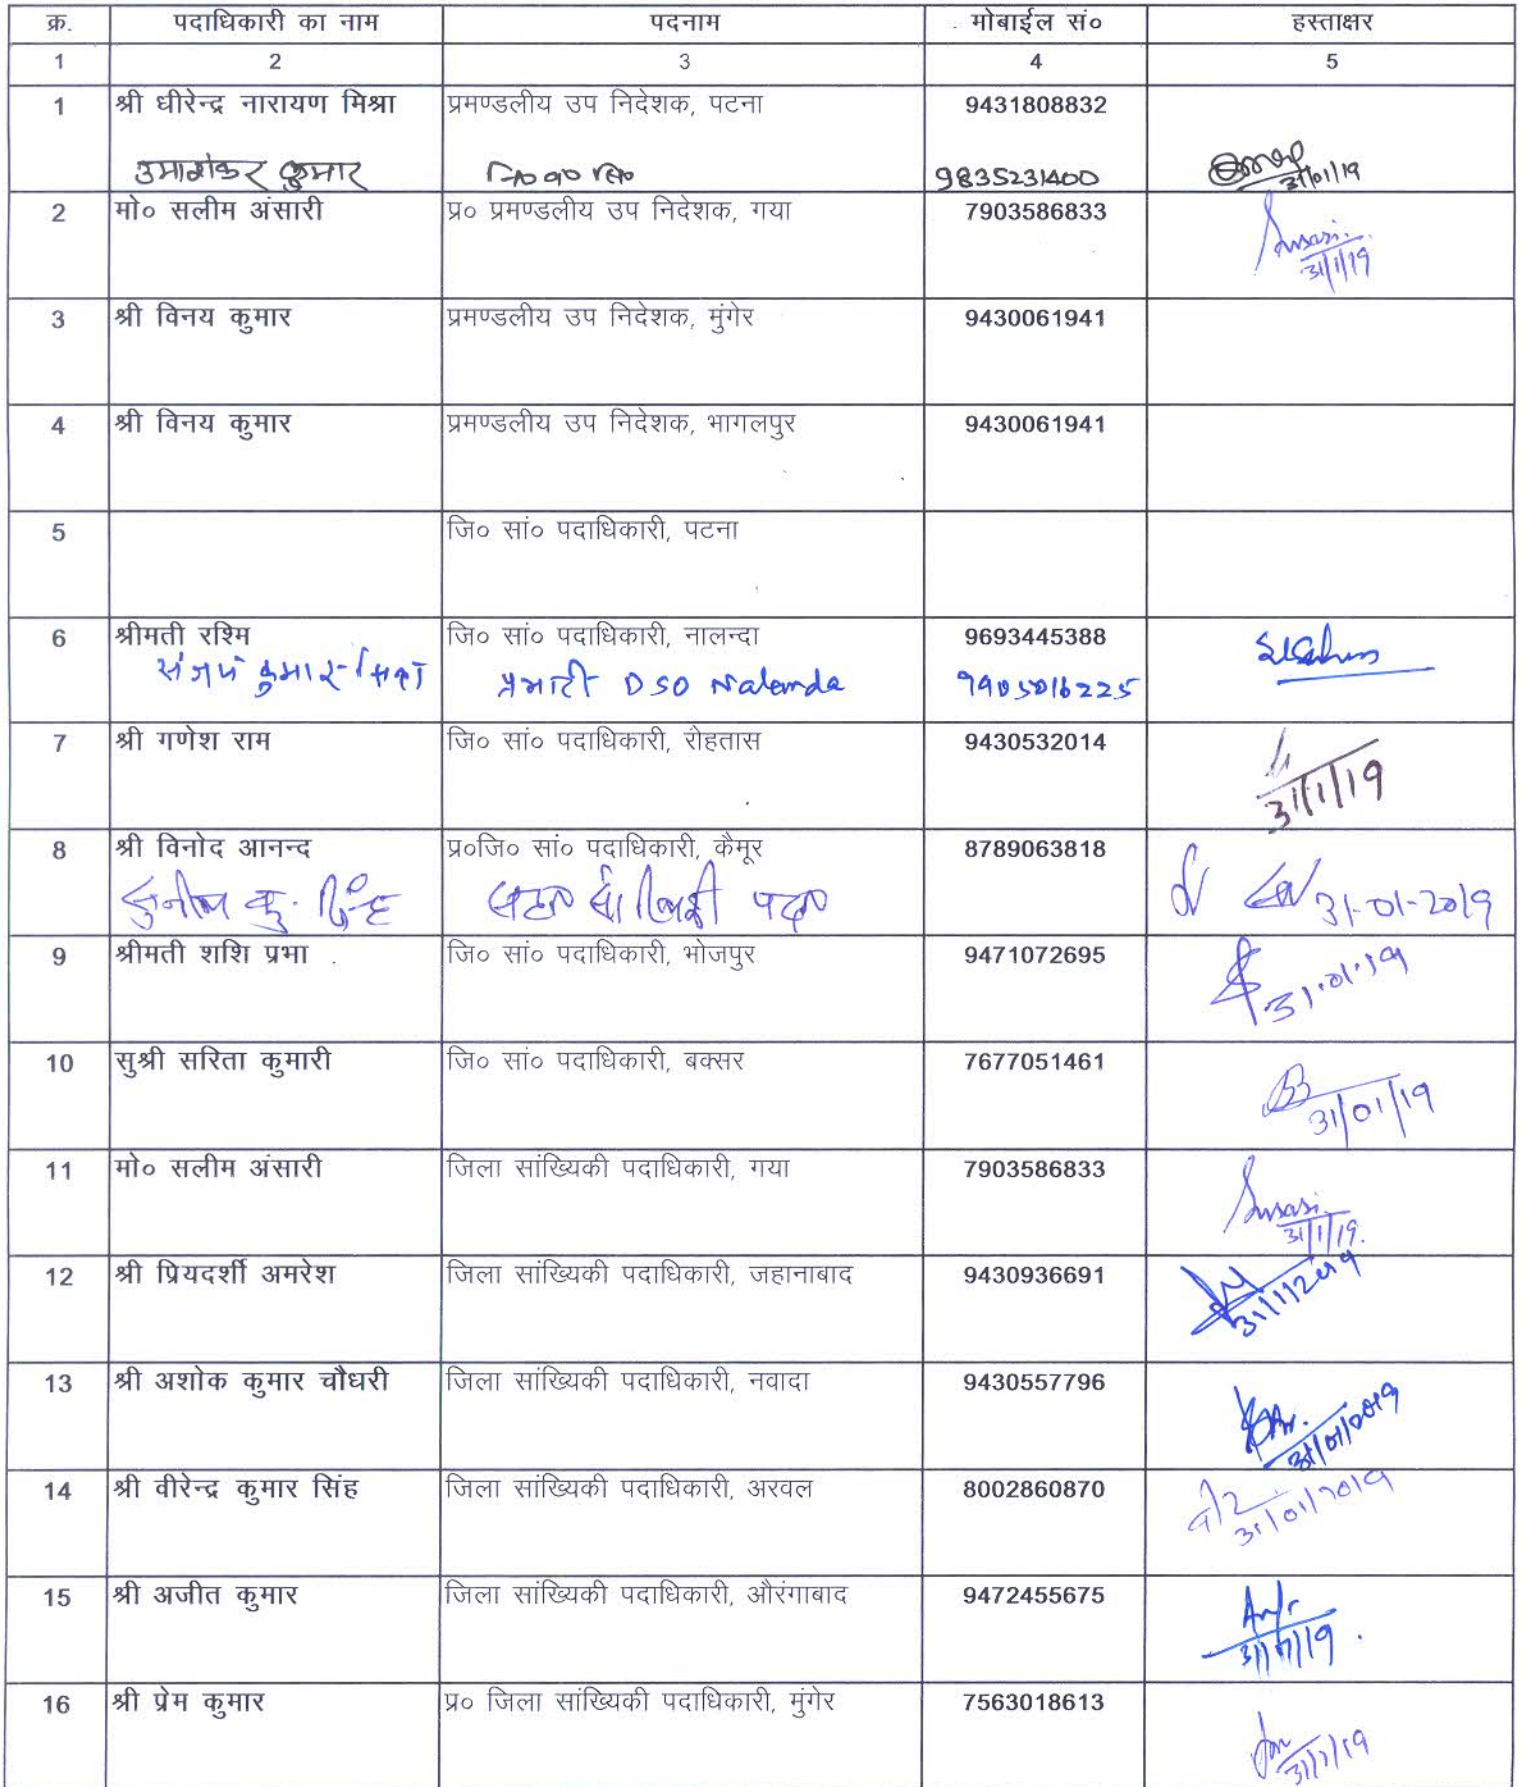 क्र. पदाधिकारी का नाम पदनाम मोबाईल सं० हस्ताक्षर
1 2 3 4 5
1 श्री धीरेन्द्र नारायण मिश्रा प्रमण्डलीय उप निदेशक, पटना 9431808832
उमाशंकर कुमार 9835231400 31/01/19
2 मो० सलीम अंसारी प्र० प्रमण्डलीय उप निदेशक, गया 7903586833
Ansari
31/1/19
3 श्री विनय कुमार प्रमण्डलीय उप निदेशक, मुंगेर 9430061941
4 श्री विनय कुमार प्रमण्डलीय उप निदेशक, भागलपुर 9430061941
5 जि० सां० पदाधिकारी, पटना
6 श्रीमती रश्मि जि० सां० पदाधिकारी, नालन्दा 9693445388
संजय कुमार प्रभारी DSO Nalanda 9905016225
7 श्री गणेश राम जि० सां० पदाधिकारी, रोहतास 9430532014
31/1/19
8 श्री विनोद आनन्द प्र०जि० सां० पदाधिकारी, कैमूर 8789063818
कु. सिंह 31-01-2019
9 श्रीमती शशि प्रभा जि० सां० पदाधिकारी, भोजपुर 9471072695
31.01.19
10 सुश्री सरिता कुमारी जि० सां० पदाधिकारी, बक्सर 7677051461
31/01/19
11 मो० सलीम अंसारी जिला सांख्यिकी पदाधिकारी, गया 7903586833
Ansari
31/1/19.
12 श्री प्रियदर्शी अमरेश जिला सांख्यिकी पदाधिकारी, जहानाबाद 9430936691
31/1/2019
13 श्री अशोक कुमार चौधरी जिला सांख्यिकी पदाधिकारी, नवादा 9430557796
31/01/2019
14 श्री वीरेन्द्र कुमार सिंह जिला सांख्यिकी पदाधिकारी, अरवल 8002860870
31/01/2019
15 श्री अजीत कुमार जिला सांख्यिकी पदाधिकारी, औरंगाबाद 9472455675
31/1/19
16 श्री प्रेम कुमार प्र० जिला सांख्यिकी पदाधिकारी, मुंगेर 7563018613
31/1/19